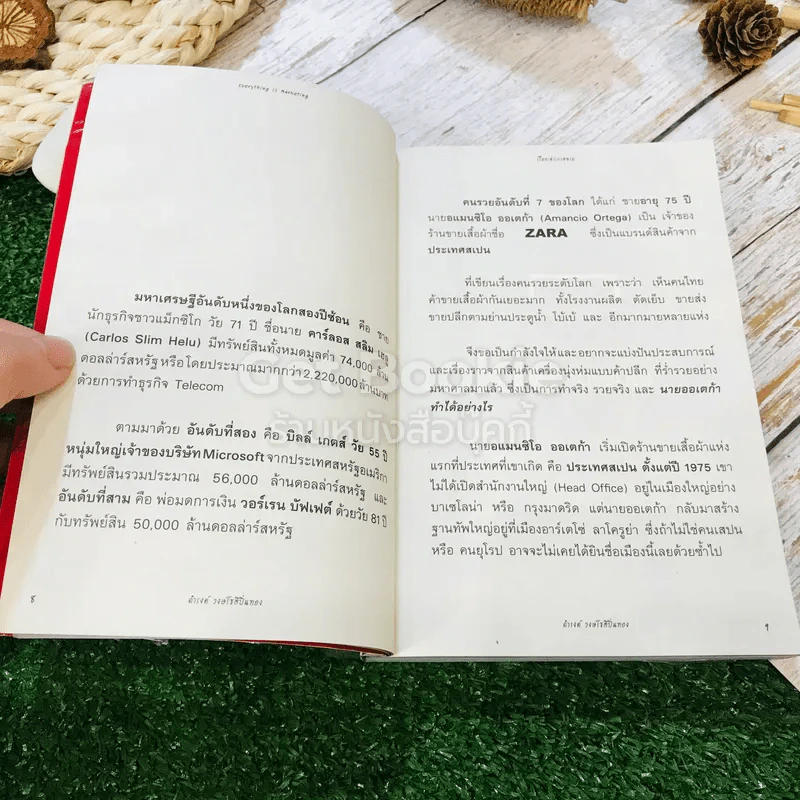 everything is marketing
มหาเศรษฐีอันดับหนึ่งของโลกสองปีซ้อน คือ ชาย
นักธุรกิจชาวแม็กซิโก วัย 71 ปี ชื่อนาย คาร์ลอส สลิม เฮลู
(Carlos Slim Helu) มีทรัพย์สินทั้งหมดมูลค่า 74,000 ล้าน
ดอลล่าร์สหรัฐ หรือโดยประมาณมากกว่า 2,220,000 ล้านบาท
ด้วยการทำธุรกิจ Telecom
ตามมาด้วย อันดับที่สอง คือ บิลล์ เกตส์ วัย 55 ปี
หนุ่มใหญ่เจ้าของบริษัท Microsoft จากประเทศสหรัฐอเมริกา
มีทรัพย์สินรวมประมาณ 56,000 ล้านดอลล่าร์สหรัฐ และ
อันดับที่สาม คือ พ่อมดการเงิน วอร์เรน บัฟเฟต์ ด้วยวัย 81 ปี
กับทรัพย์สิน 50,000 ล้านดอลล่าร์สหรัฐ
๘
ดำรงค์ วงษ์โชติปิ่นทอง
คนรวยอันดับที่ 7 ของโลก ได้แก่ ชายอายุ 75 ปี
นายอแมนซิโอ ออเตก้า (Amancio Ortega) เป็น เจ้าของ
ร้านขายเสื้อผ้าชื่อ ZARA ซึ่งเป็นแบรนด์สินค้าจาก
ประเทศสเปน
ที่เขียนเรื่องคนรวยระดับโลก เพราะว่า เห็นคนไทย
ค้าขายเสื้อผ้ากันเยอะมาก ทั้งโรงงานผลิต ตัดเย็บ ขายส่ง
ขายปลีกตามย่านประตูน้ำ โบ้เบ้ และ อีกมากมายหลายแห่ง
จึงขอเป็นกำลังใจให้และอยากจะแบ่งปันประสบการณ์
และเรื่องราวจากสินค้าเครื่องนุ่งห่มแบบค้าปลีก ที่ร่ำรวยอย่าง
มหาศาลมาแล้ว ซึ่งเป็นการทำจริง รวยจริง และ นายออเตก้า
ทำได้อย่างไร
นายอแมนซิโอ ออเตก้า เริ่มเปิดร้านขายเสื้อผ้าแห่ง
แรกที่ประเทศที่เขาเกิด คือ ประเทศสเปน ตั้งแต่ปี 1975 เขา
ไม่ได้เปิดสำนักงานใหญ่ (Head Office) อยู่ในเมืองใหญ่อย่าง
บาเซโลน่า หรือ กรุงมาดริด แต่นายออเตก้า กลับมาสร้าง
ฐานทัพใหญ่อยู่ที่เมืองอาร์เตโซ่ ลาโครูย่า ซึ่งถ้าไม่ใช่คนสเปน
หรือ คนยุโรป อาจจะไม่เคยได้ยินชื่อเมืองนี้เลยด้วยซ้ำไป
ดำรงค์ วงษ์โชติปิ่นทอง
๙
Get Bookie
ร้านหนังสือบุคกี้